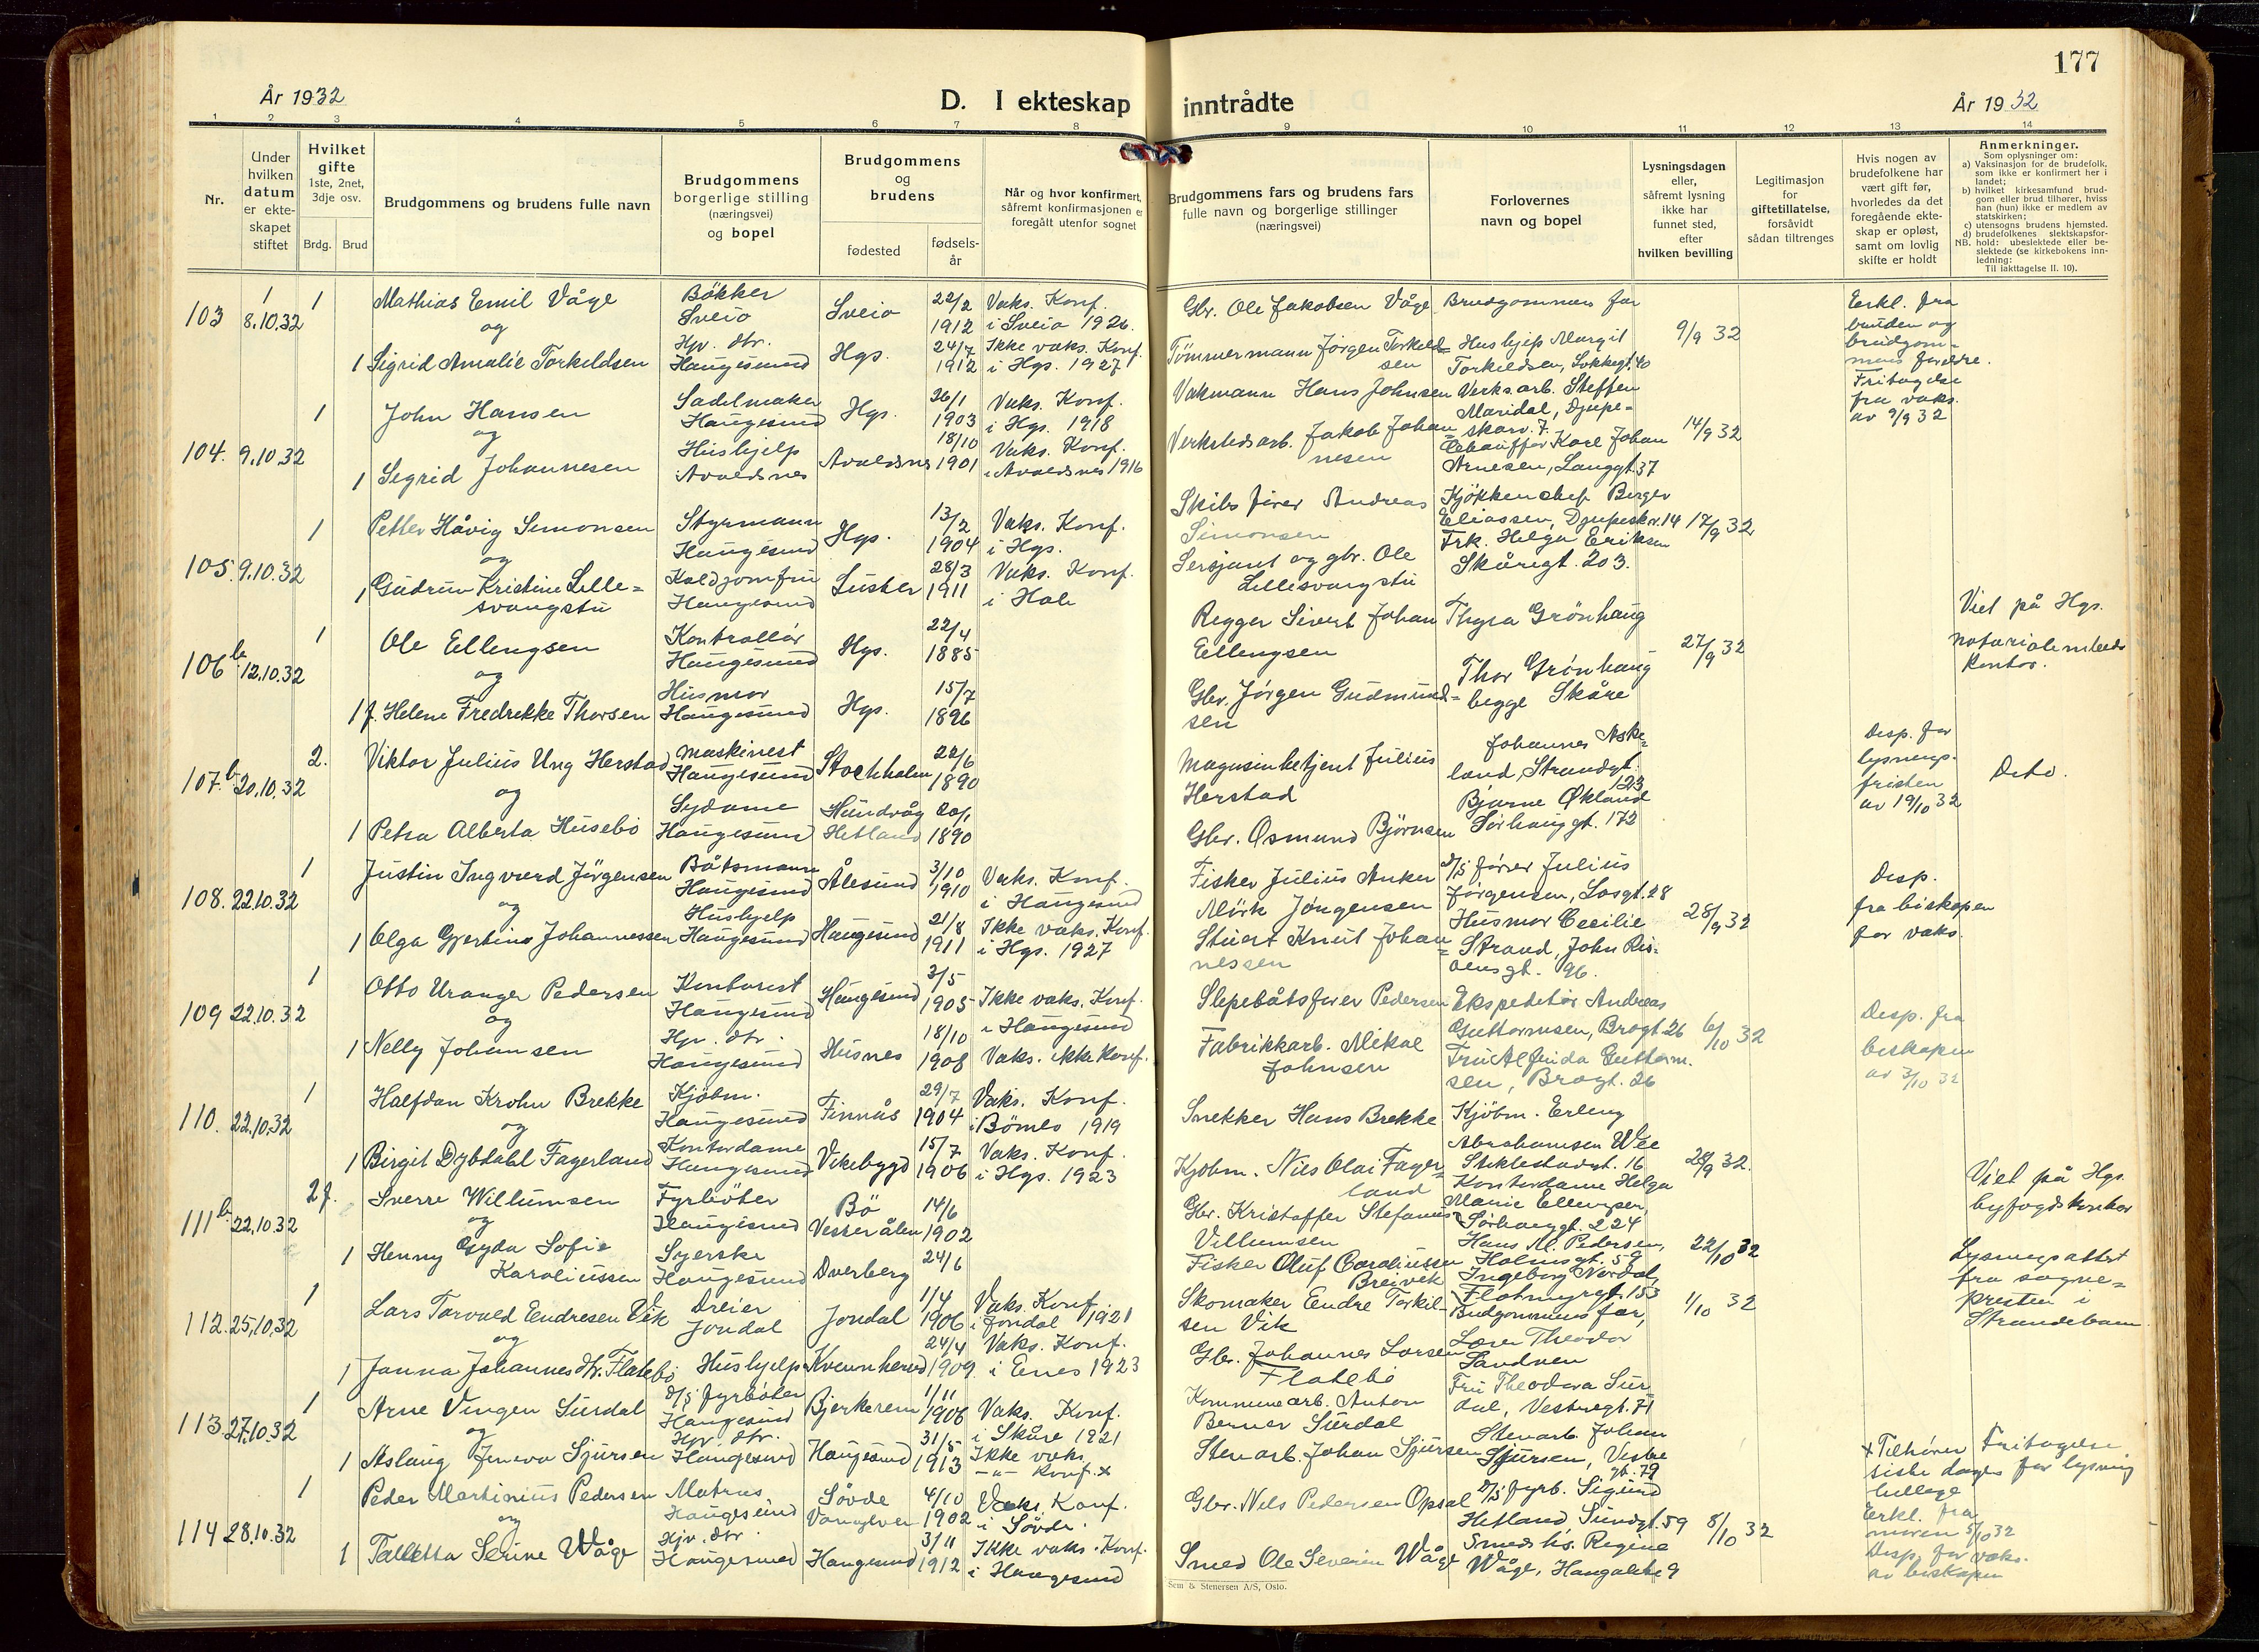 177
År 1932
D. I ekteskap inntrådte
År 1932
1 2 3 4 5 6 7 8 9 10 11 12 13 14
Nr.
Under hvilken datum er ekteskapet stiftet
Hvilket gifte
1ste, 2net, 3dje osv.
Brdg. Brud
Brudgommens og brudens fulle navn
Brudgommens borgerlige stilling (næringsvei) og bopel
Brudgommens og brudens
fødested
fødsels-år
Når og hvor konfirmert, såfremt konfirmasjonen er foregått utenfor sognet
Brudgommens fars og brudens fars fulle navn og borgerlige stillinger (næringsvei)
Forlovernes navn og bopel
Lysningsdagen eller, såfremt lysning ikke har funnet sted, efter hvilken bevilling
Legitimasjon for giftetillatelse, forsåvidt sådan tiltrenges
Hvis nogen av brudefolkene har vært gift før, hvorledes da det foregående ekteskap er opløst, samt om lovlig skifte er holdt
Anmerkninger.
Som oplysninger om:
a) Vaksinasjon for de brudefolk, som ikke er konfirmert her i landet;
b) hvilket kirkesamfund brudgom eller brud tilhører, hviss han (hun) ikke er medlem av statskirken;
c) utensogns brudens hjemsted.
d) brudefolkenes slektskapsforhold: ubeslektede eller beslektede (se kirkebokens innledning:
NB. Til iakttagelse II. 10).
103 8.10.32 1 Mathias Emil Våge Bökker Sveio Sveio 22/2 1912 Vaks. Konf. i Sveio 1926. Gbr. Ole Jakobsen Våge Brudgommens far 9/9 32 Erkl. fra bruden og brudgommens foreldre. Fritagelse fra vaks. av 9/9 32
og
1 Sigrid Amalie Torkildsen Hjv. dtr. Haugesund Hgs. 24/7 1912 Ikke vaks. Konf. i Hgs. 1927 Tömmermann Jörgen Torkildsen Hushjelp Margit Torkildsen, Sokkegt. 40
104. 9.10.32 1 John Hansen Sadelmaker Haugesund Hgs. 26/1 1903 Vaks. Konf. i Hgs. 1918 Vakmann Hans Johnsen Verksarb. Steffen Maridal, Djupeskarv. 7. 14/9 32
og
1 Sigrid Johannesen Hushjelp Avaldsnes Avaldsnes 18/10 1901 Vaks. Konf. i Avaldsnes 1916 Verkstedsarb. Jakob Johannesen Chaufför Karl Johan Arnesen, Langgt. 37
105. 9.10.32 1 Petter Håvig Simonsen Styrmann Haugesund Hgs. 13/2 1904 Vaks. Konf. i Hgs. Skibsfører Andreas Simonsen Kjøkkenchef Birger Eliassen, Djupeskv. 14 17/9 32
og
1 Gudrun Kristine Lillesvangstu Koldjomfru Haugesund Luster 28/3 1911 Vaks. Konf. i Hole Sersjant og gbr. Ole Lillesvangstu Frk. Helga Eriksen Skåregt. 203.
106 b. 12.10.32 1 Ole Ellengsen Kontrollör Haugesund Hgs. 22/4 1885 Regger Sivert Johan Ellengsen Thyra Grönhaug 27/9 32 Viet på Hgs. notarialembeds kontor.
og
1 f. Helene Fredrekke Thorsen Husmor Haugesund Hgs. 15/7 1896 Gbr. Jörgen Gudmundsen Thor Grönhaug begge Skåre
107. b 20.10.32 2. Viktor Julius Ung Herstad Maskinist Haugesund Stockholm 22/6 1890 Magasinbetjent Julius Herstad Johannes Askeland, Strandgt. 123 Desp. for lysnings-fristen av 19/10 32 Dito.
og
1 Petra Alberta Husebö Sydame Haugesund Hundvåg Hetland 1890 Gbr. Osmund Björnsen Bjarne Økland Sørhauggt. 172
108. 22.10.32 1 Justin Ingvard Jörgensen Båtsmann Haugesund Ålesund 3/10 1910 Vaks. Konf. i Haugesund Fisker Julius Anker Mörk Jörgensen D/S förer Julius Jørgensen, Losgt. 28 28/9 32 Desp. fra biskopen for vaks.
og
1 Olga Gjertine Johannessen Hushjelp Haugesund Haugesund 21/8 1911 Ikke vaks. Konf. i Hgs. 1927 Stuert Knut Johannessen Husmor Cecilie Strand, John Risøensgt. 96.
109 22.10.32 1 Otto Uranger Pedersen Kontorist Haugesund Haugesund 3/5 1905 Ikke vaks. Konf. i Haugesund Slepebåtsfører Pedersen Ekspeditör Andreas Guttormsen, Brogt. 26 6/10 32 Desp. fra biskopen av 3/10 32
og
1 Nelly Johansen Hjv. dtr. Haugesund Husnes 18/10 1908 Vaks. ikke konf. Fabrikkarb. Mikal Johnsen Fru Alfrida Guttormsen, Brogt. 26
110. 22.10.32 1 Halfdan Krohn Brekke Kjöbm. Haugesund Finnås 29/7 1904 Vaks. Konf. i Bömlo 1919 Snekker Hans Brekke Kjöbm. Erling Abrahamsen Wee Stiklestadgt. 16 28/9 32.
og
1 Birgit Dybdahl Fagerland Kontordame Haugesund Vikebygd 15/7 1906 Vaks. Konf. i Hgs. 1923 Kjøbm. Nils Olai Fagerland Kontordame Helga Marie Ellingsen, Sørhauggt. 224
111 b. 22.10.32 2 f. Sverre Willumsen Fyrböter Haugesund Bö Vesterålen 14/6 1902 Gbr. Kristoffer Stefanus Villumsen Hans M. Pedersen, Holmsgt. 59 22/10 32 Viet på Hgs. byfogdskontor
og
1 Henny Gyda Sofie Karoliussen Syerske Haugesund Dverberg 24/6 Fisker Oluf Caroliussen Breivek Ingeborg Nerdal, Flotmyrgt. 153
112. 25.10.32 1 Lars Torvald Endresen Vik Dreier Jondal Jondal 1/4 1906 Vaks. Konf. i Jondal 1921 Skomaker Endre Torkilsen Vik Budgommens far, 1/10 32 Lysningsattest fra sogne-presten i Strandebarm
og
1 Janna Johannesdtr. Flatebö Hushjelp Kvennherad 24/4 1909 Vaks. Konf. i Enes 1923 Gbr. Johannes Larsen Flatebö Lærer Theodor Sandven
113 27.10.32 1 Arne Vingen Surdal D/S fyrböter Haugesund Bjerkreim 1/11 1906 Vaks. Konf. i Skåre 1921 Kommunearb. Anton Berner Surdal Fru Theodora Surdal, Vestregt. 71
og
1 Aslaug Jeneva Sjursen Hjv. dtr. Haugesund Haugesund 31/5 1913 Ikke vaks. -"- Konf. x Stenarb. Johan Sjursen Stenarb. Johan Sjursen, Vestre gt. 79 x Tilhører siste dages hellige Fritagelse for lysning
114 28.10.32 1 Peder Martinius Pedersen Matros Haugesund Søvde Vanylven 4/10 1902 Vaks. Konf. i Søvde. Gbr. Nils Pedersen Opsal D/S fyrb. Sigurd Hetland Sundgt. 59 8/10 32 Erkl. fra moren 5/10 32 Desp. for vaks. av biskopen
og
1 Talletta Serine Våge Hjv. dtr. Haugesund Haugesund 3/11 1912 Ikke vaks. Konf. i Haugesund Smed Ole Severin Våge Smeds hs. Regine Våge, Haugalekk 9
Sem & Stenersen A/S, Oslo.